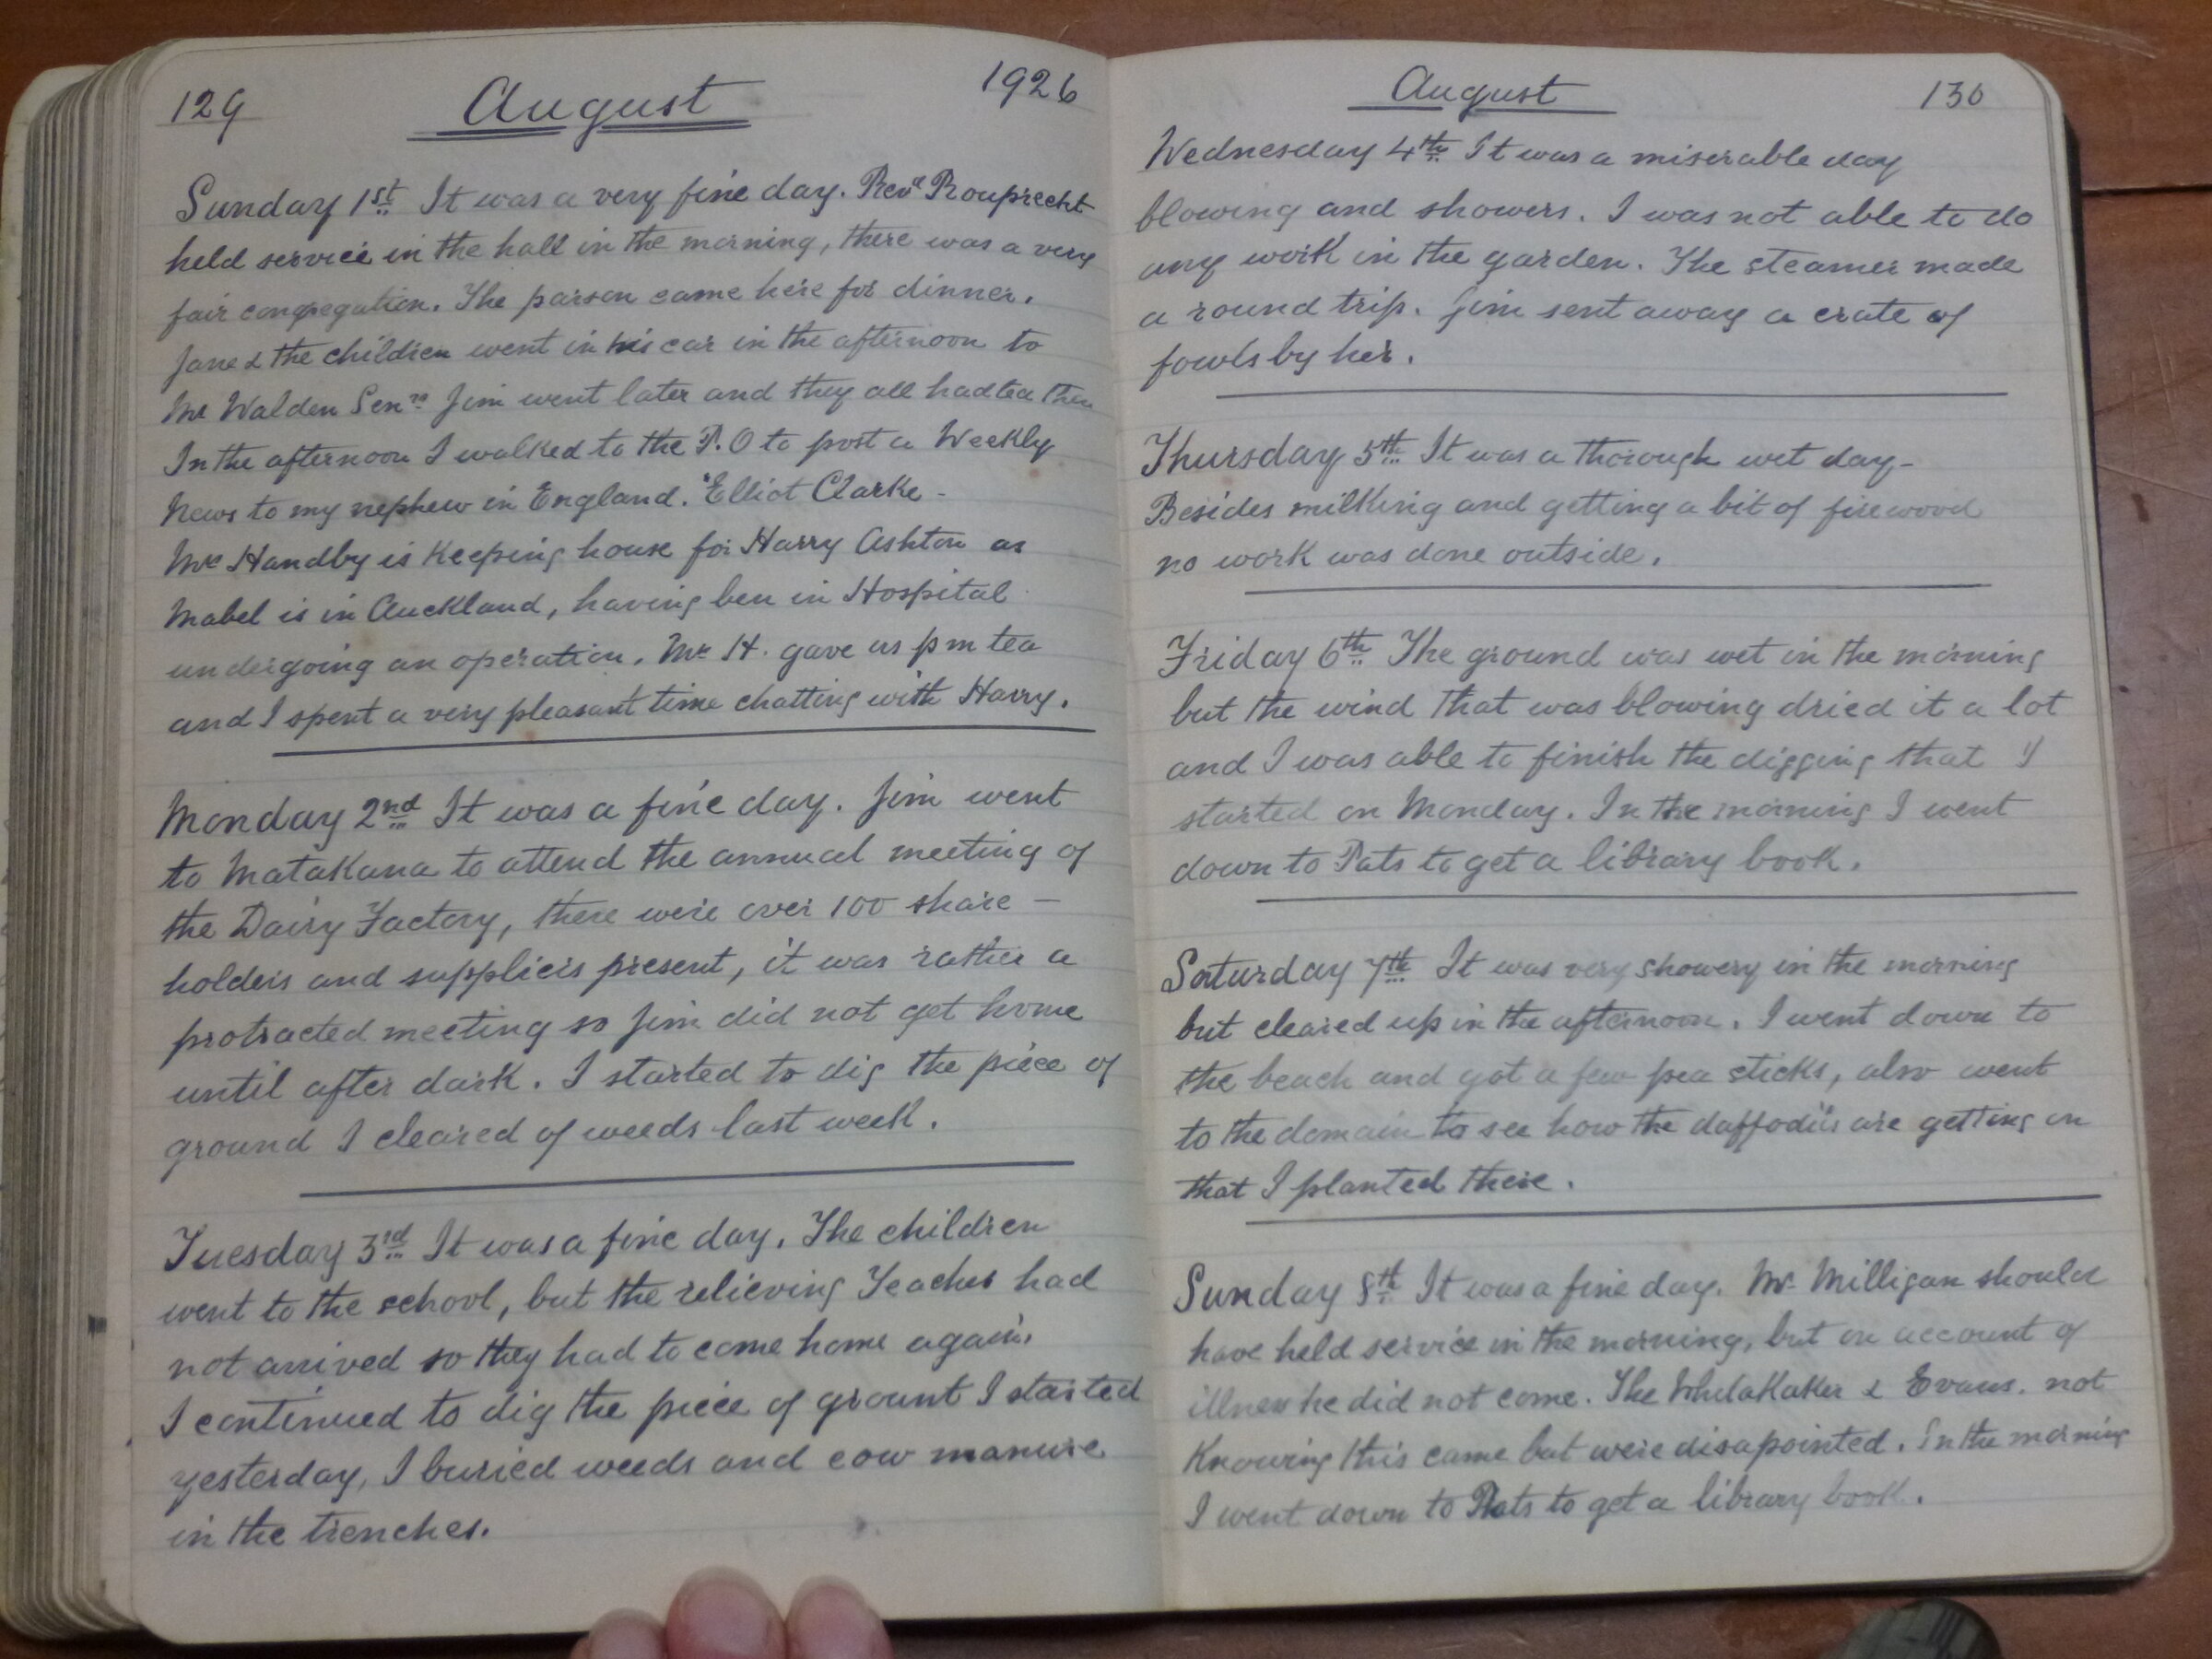 129 August 1926
Sunday 1st It was a very fine day. Revd Rouprecht
held service in the hall in the morning, there was a very
fair congregation. The parson came here for dinner.
Jane & the children went in his car in the afternoon to
Mr Walden Senrs Jim went later and they all had tea there
In the afternoon I walked to the P.O to post a Weekly
News to my nephew in England. Elliot Clarke -
Mrs Handby is keeping house for Harry Ashton as
Mabel is in Auckland, having ben in Hospital
undergoing an operation. Mrs H. gave us pm tea
and I spent a very pleasant time chatting with Harry.
Monday 2nd It was a fine day. Jim went
to Matakana to attend the annual meeting of
the Dairy Factory, there were over 100 share -
holders and suppliers present, it was rather a
protracted meeting so Jim did not get home
until after dark. I started to dig the piece of
ground I cleared of weeds last week.
Tuesday 3rd It was a fine day. The children
went to the school, but the relieving Teacher had
not arrived so they had to come home again.
I continued to dig the piece of grount I started
yesterday, I buried weeds and cow manure
in the trenches.
August 130
Wednesday 4th It was a miserable day
blowing and showers. I was not able to do
any work in the garden. The steamer made
a round trip. Jim sent away a crate of
fowls by her.
Thursday 5th It was a thorough wet day -
Besides milking and getting a bit of firewood
no work was done outside.
Friday 6th The ground was wet in the morning
but the wind that was blowing dried it a lot
and I was able to finish the digging that I
started on Monday. In the morning I went
down to Pats to get a library book.
Saturday 7th It was very showery in the morning
but cleared up in the afternoon. I went down to
the beach and got a few pea sticks, also went
to the domain to see how the daffodils are getting on
that I planted there.
Sunday 8th It was a fine day. Mr Milligan should
have held service in the morning, but on account of
illness he did not come. The & Evans. not
Knowing this came but were disapointed. In the morning
I went down to Pats to get a library book.